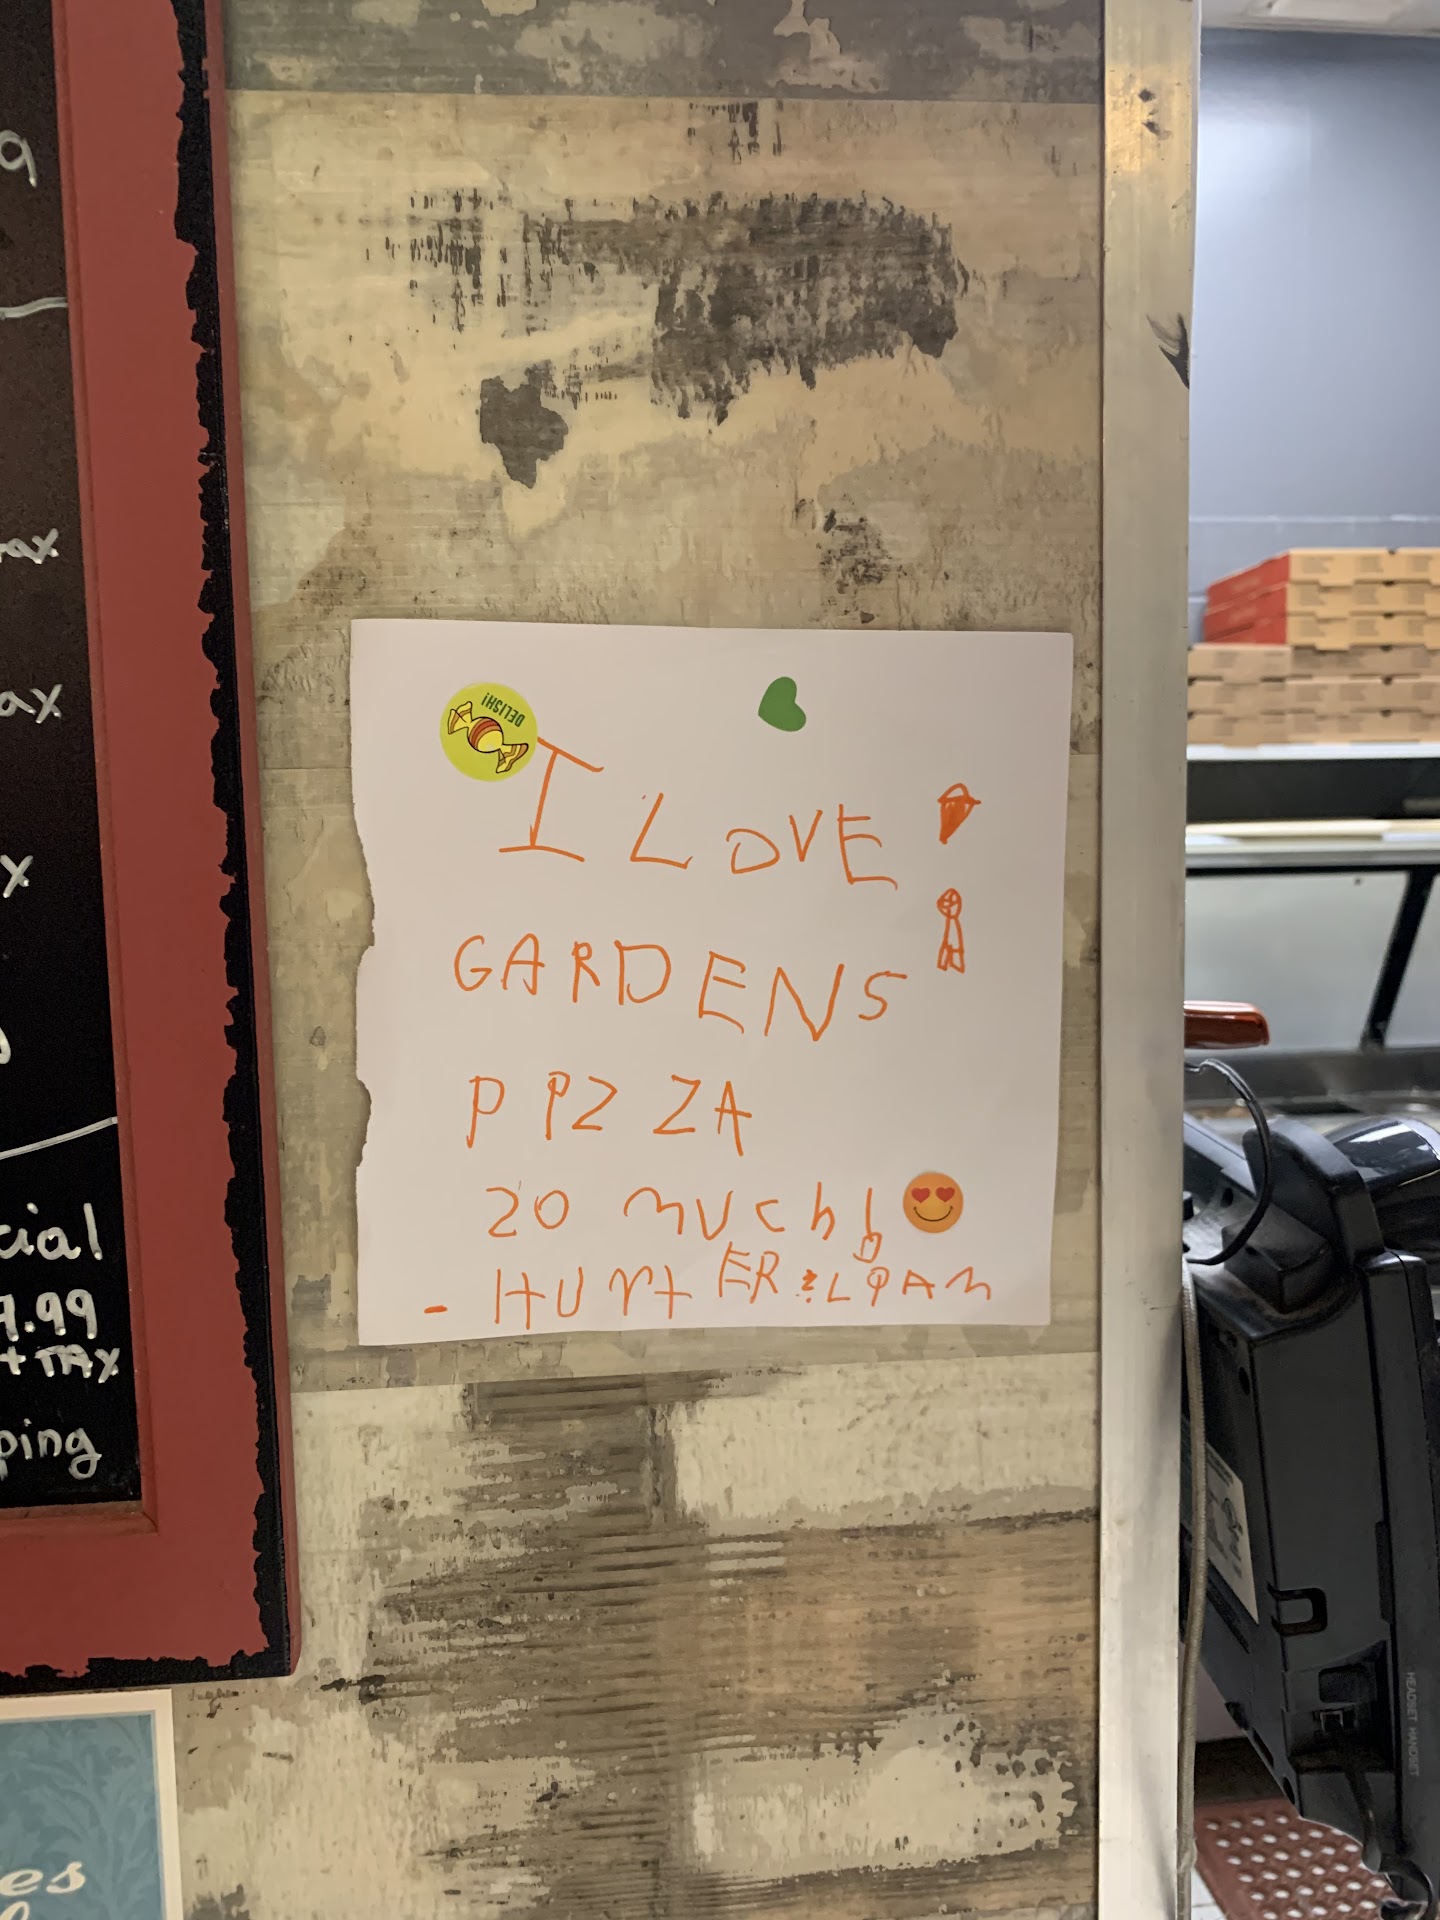 9
ax
ax
x
cial
9.99
+ TAX
pping
es
DELISH!
I LOVE
GARDENS
PPZZA
20 much!
- HUNTER & LIAM
HEADSET HANDSET